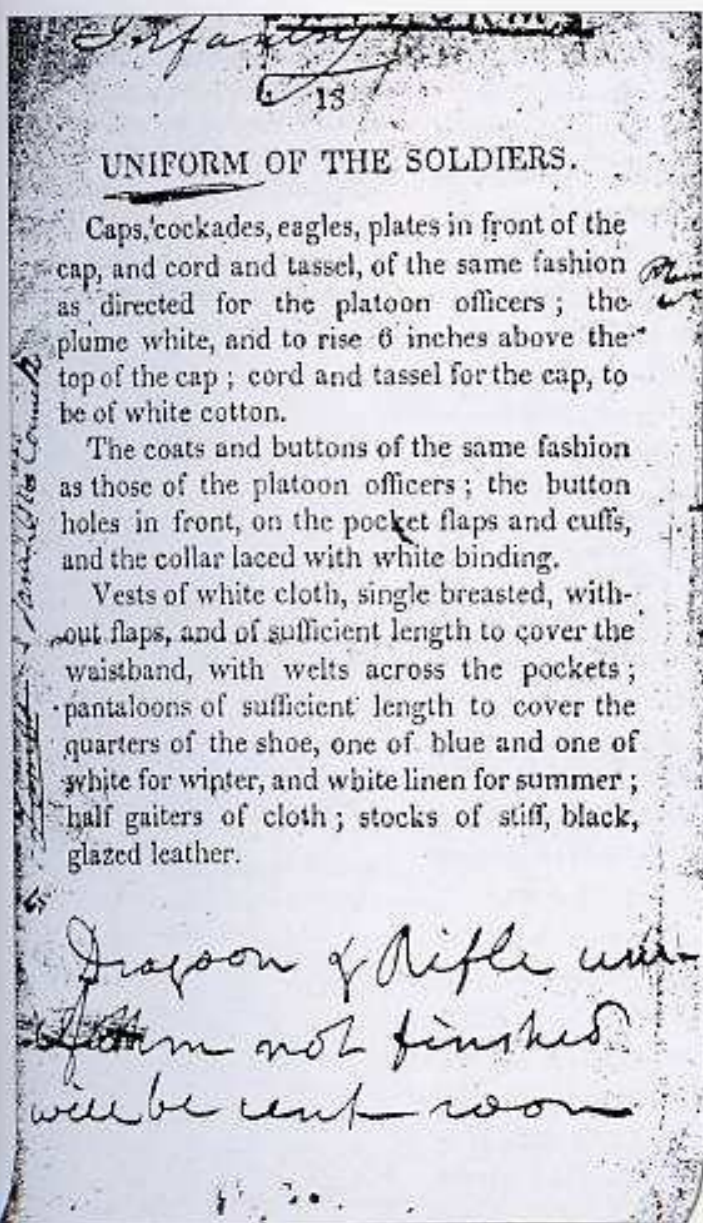 Infantry
18
UNIFORM OF THE SOLDIERS.
Caps, cockades, eagles, plates in front of the
cap, and cord and tassel, of the same fashion
as directed for the platoon officers ; the
plume white, and to rise 6 inches above the
top of the cap ; cord and tassel for the cap, to
be of white cotton.
The coats and buttons of the same fashion
as those of the platoon officers ; the button
holes in front, on the pocket flaps and cuffs,
and the collar laced with white binding.
Vests of white cloth, single breasted, with-
out flaps, and of sufficient length to cover the
waistband, with welts across the pockets ;
pantaloons of sufficient length to cover the
quarters of the shoe, one of blue and one of
white for winter, and white linen for summer ;
half gaiters of cloth ; stocks of stiff, black,
glazed leather.
Dragoon & Rifle uni-
form not finished
will be sent soon